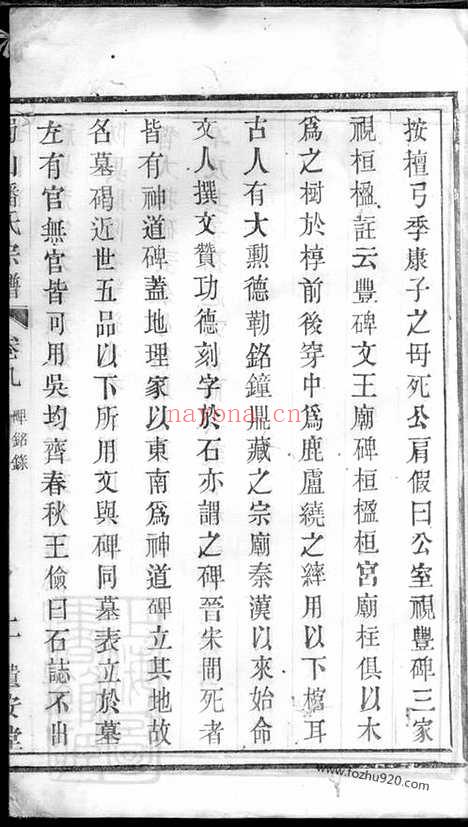 按檀弓季康子之母死公肩假曰公室視豐碑三家
視桓楹註云豐碑文王廟碑桓楹桓宮廟柱俱以木
爲之樹於椁前後穿中爲鹿盧繞之繂用以下棺耳
古人有大勲德勒銘鐘鼎藏之宗廟秦漢以來始命
文人撰文贊功德刻字於石亦謂之碑晉宋間死者
皆有神道碑蓋地理家以東南爲神道碑立其地故
名墓碣近世五品以下所用文與碑同墓表立於墓
左有官無官皆可用吳均齊春秋王儉曰石誌不出
山潘氏宗譜 卷九 碑銘錄
堂
nayona.cn
www.fozhu920.com